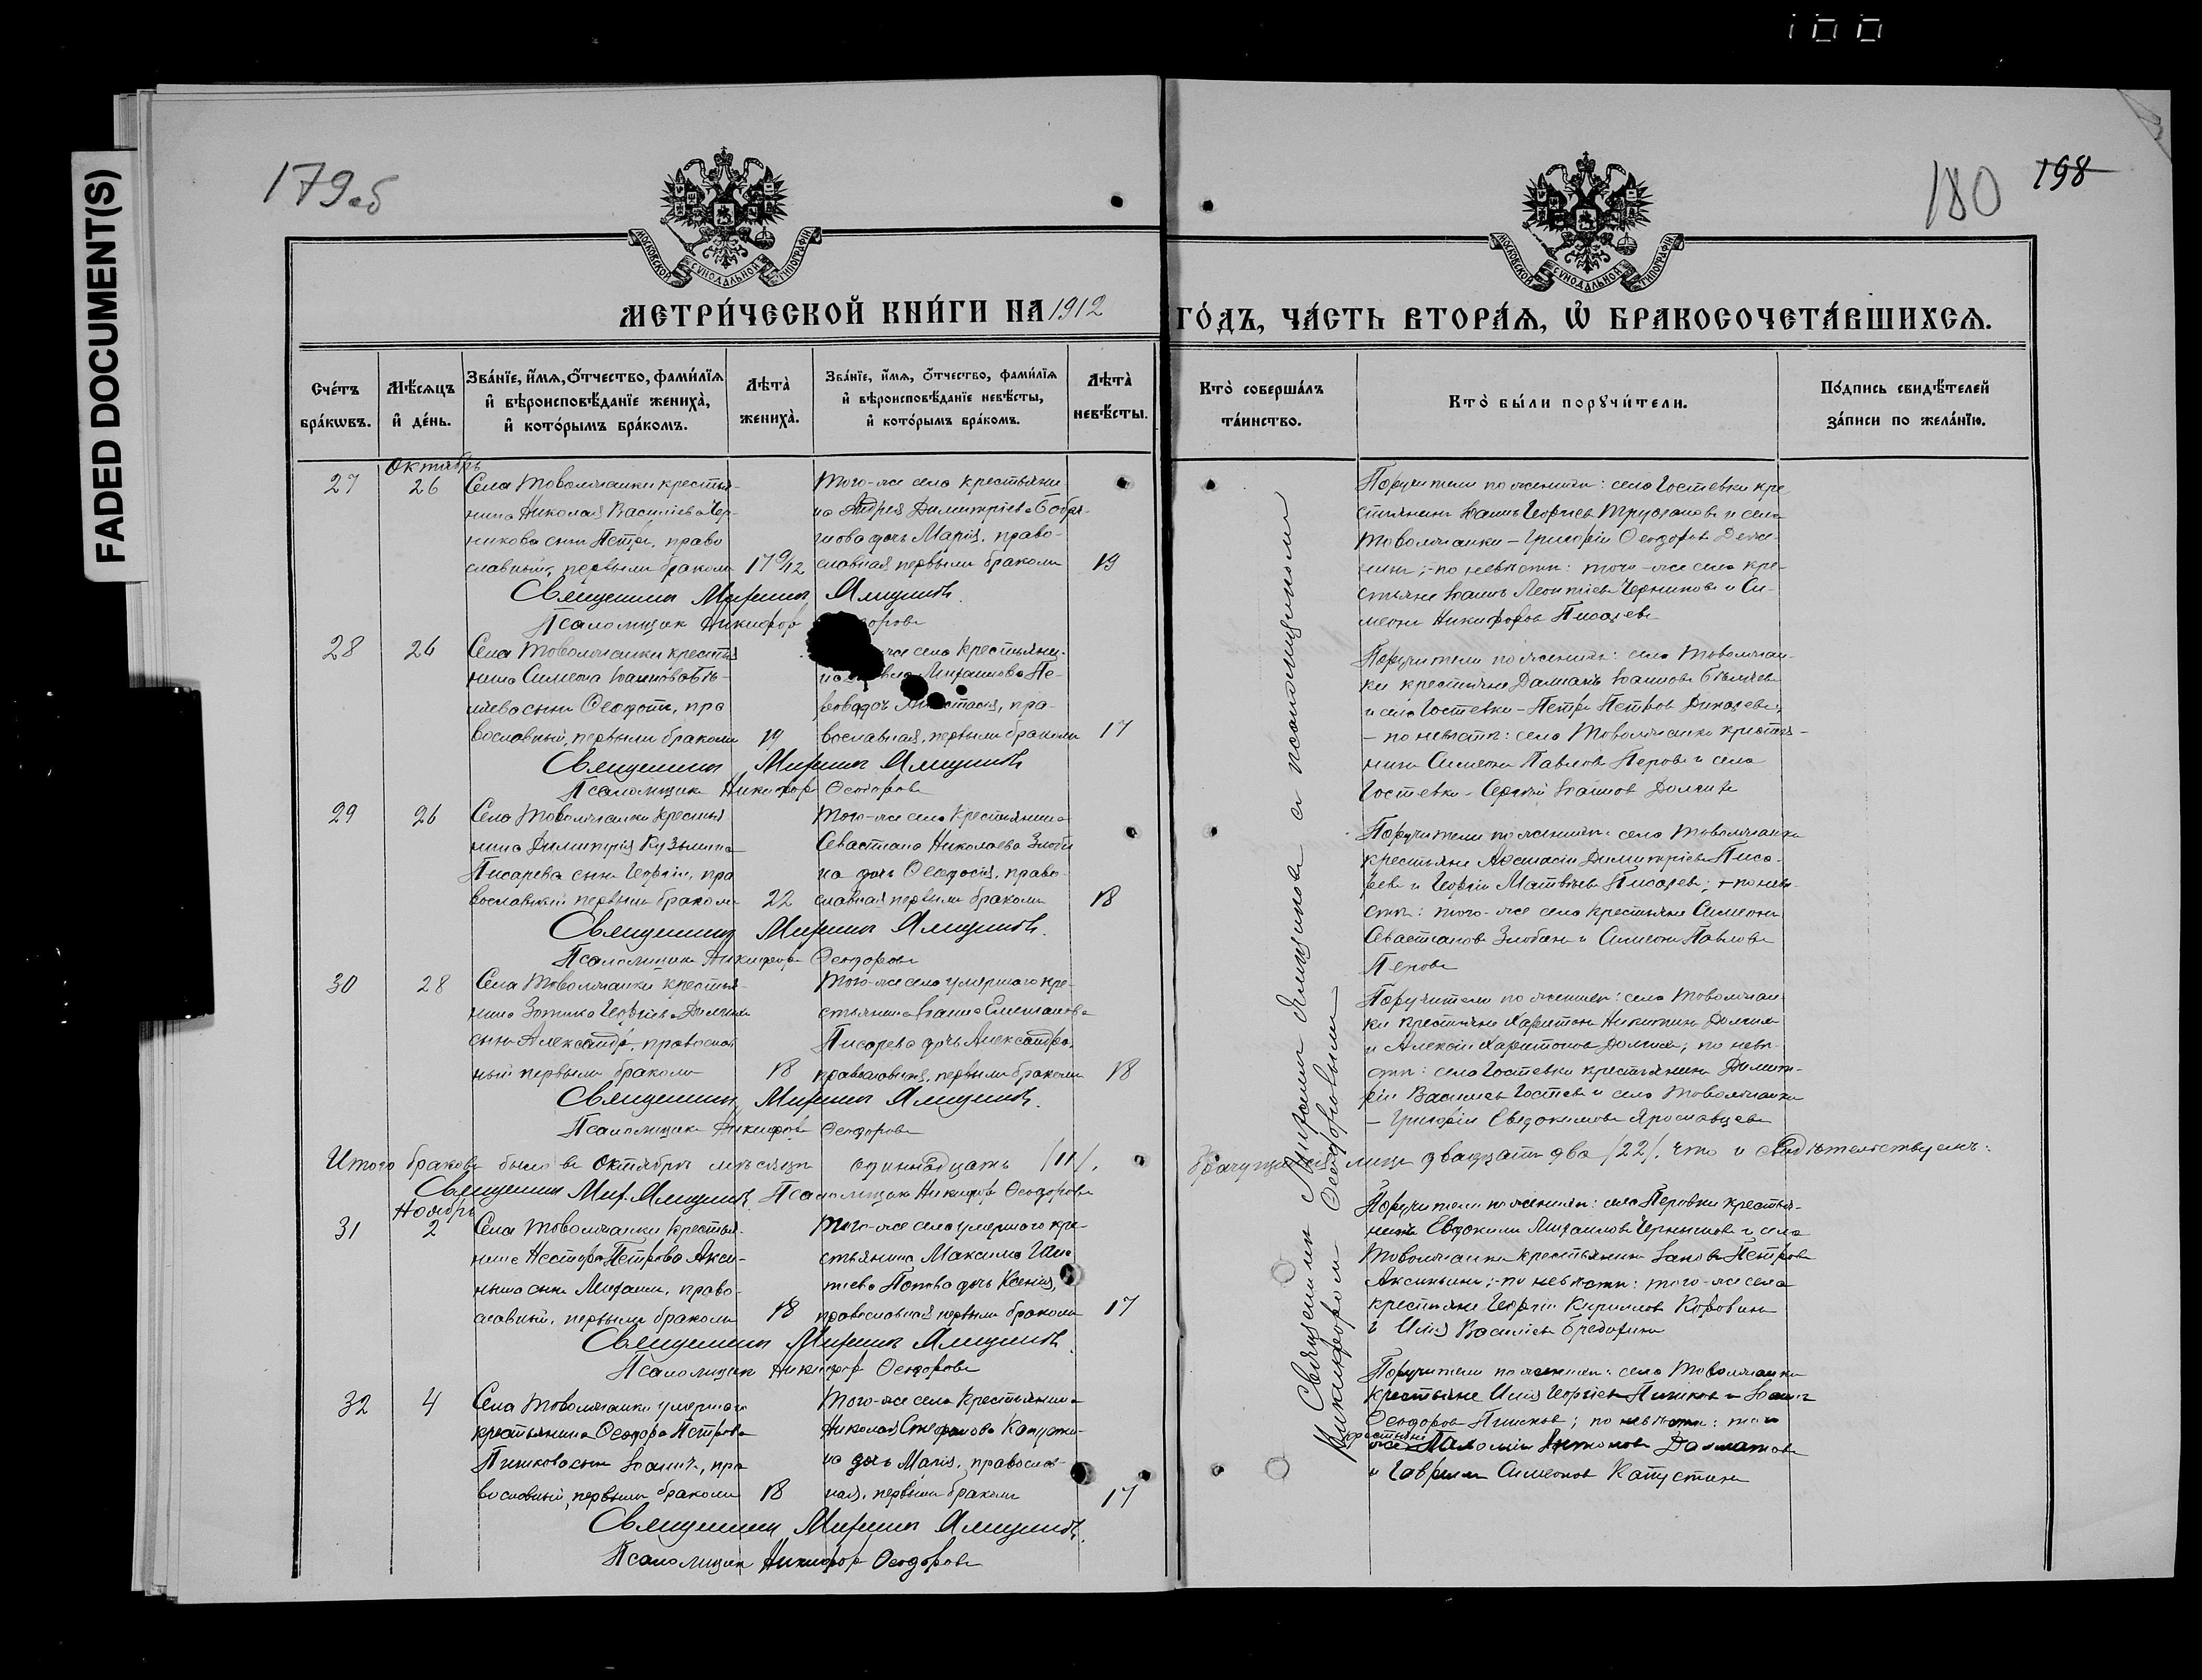 FADED DOCUMENT(S)
100
179об
180 198
МОСКОВСКОЙ СУНОДАЛЬНОЙ ТИПОГРАФІИ
МОСКОВСКОЙ СУНОДАЛЬНОЙ ТИПОГРАФІИ
МЕТРИ́ЧЕСКОЙ КНИ́ГИ НА 1912 ГО́ДЪ, ЧА́СТЬ ВТОРА́Ѧ, Ѡ҆ БРАКОСОЧЕТА́ВШИХСѦ.
Сче́тъ бра́кѡвъ.
Мѣ́сяцъ и҆ де́нь.
Зва́нїе, и҆́мѧ, ѻ҆́тчество, фами́лїѧ и҆ вѣроисповѣ́данїе жениха̀, и҆ кото́рымъ бра́комъ.
Лѣта̀ жениха̀.
Зва́нїе, и҆́мѧ, ѻ҆́тчество, фами́лїѧ и҆ вѣроисповѣ́данїе невѣ́сты, и҆ кото́рымъ бра́комъ.
Лѣта̀ невѣ́сты.
Кто̀ соверша́лъ та́инство.
Кто̀ бы́ли порꙋчи́тели.
По́дпись свидѣ́телей за́писи по жела́нїю.
Октябрь
27
26
Села Товолжанки крестья-
нина Николая Васильева Чер-
никова сынъ Петръ, право
славный, первымъ бракомъ
17 9/12
Того-же села крестьяни
на Андрея Димитріева Бобры-
шова дочь Марія, право-
славная первымъ бракомъ
19
Поручители по женихѣ: села Гостевки кре
стьянинъ Іоаннъ Георгіевъ и села
Товолжанки - Григорій Ѳеодоровъ
; - по невѣстѣ: того-же села кре-
стьяне Іоаннъ Леонтіевъ Черниковъ и Си-
меонъ Никифоровъ Писаревъ
Священникъ Миронъ Ямщиковъ.
Псаломщикъ Никифоръ
28
26
Села Товолжанки крестья
нина Симеона Іоаннова Бѣ-
ляева сынъ Ѳеодотъ, пра
вославный, первымъ бракомъ
19
же села крестьяни-
на Михаилова Пе-
рова дочь Анастасія, пра-
вославная, первымъ бракомъ
17
Поручители по женихѣ: села Товолжан-
ки крестьяне Іоанновъ Бѣляевъ
и села Гостевки - Петръ Петровъ
- по невѣстѣ: села Товолжанки крестья-
нинъ Симеонъ Павловъ Перовъ и села
Гостевки - Сергій Іоанновъ
Священникъ Миронъ Ямщиковъ
Псаломщикъ Никифоръ Ѳеодоровъ
29
26
Села Товолжанки крестья
нина Димитрія Кузьмина
Писарева сынъ Георгій, пра
вославный первымъ бракомъ
22
Того-же села крестьянина
Севастіана Николаева Злоби
на дочь Ѳеодосія, право
славная первымъ бракомъ
18
Поручители по женихѣ: села Товолжанки
крестьяне Аѳанасій Димитріевъ Писа-
ревъ и Георгій Матвѣевъ Писаревъ; по невѣ-
стѣ: того-же села крестьяне Симеонъ
Севастіановъ Злобинъ и Симеонъ Павловъ
Перовъ
Священникъ Миронъ Ямщиковъ.
Псаломщикъ Никифоръ Ѳеодоровъ
30
28
Села Товолжанки крестья-
нина Зотика Георгіева
сынъ Александръ, православ
ный первымъ бракомъ
18
Того-же села умершаго кре-
стьянина Іоанна
Писарева дочь Александра,
православная, первымъ бракомъ
18
Поручители по женихѣ: села Товолжан-
ки крестьяне Харитонъ Никитинъ
и Алексій Харитоновъ ; по невѣ
стѣ: села Гостевки крестьянинъ Димит-
рій Васильевъ Гостевъ и села Товолжанки
- Григорій Евдокимовъ Ярославцевъ
Священникъ Миронъ Ямщиковъ.
Псаломщикъ Никифоръ Ѳеодоровъ
Итого браковъ было въ Октябрѣ мѣсяцѣ одиннадцать /11/. Брачущихся лицъ двадцать два /22/. что и свидѣтельствуемъ:
Священникъ Мир. Ямщиковъ. Псаломщикъ Никифоръ Ѳеодоровъ
Ноябрь
31
2
Села Товолжанки крестья
нина Нестора Петрова Акси-
ньина сынъ Михаилъ, право-
славный, первымъ бракомъ
18
Того-же села умершаго кре-
стьянина Максима
Попова дочь Ксенія,
православная первымъ бракомъ
17
Поручители по женихѣ: села Перовки крестья-
нинъ Евдокимъ Михаиловъ Чернышовъ и села
Товолжанки крестьянинъ Іаковъ Петровъ
Аксиньинъ; - по невѣстѣ: того-же села
крестьяне Георгій Кирилловъ Коровинъ
и Илія Васильевъ
Священникъ Миронъ Ямщиковъ
Псаломщикъ Никифоръ Ѳеодоровъ
32
4
Села Товолжанки умершаго
крестьянина Ѳеодора Петрова
сынъ Іоаннъ, пра
вославный, первымъ бракомъ
18
Того-же села крестьянина
Николая Стефанова Капусти-
на дочь Марія, православ-
ная, первымъ бракомъ
17
Поручители по женихѣ: села Товолжанки
крестьяне Илія Георгіевъ и Іоаннъ
Ѳеодоровъ ; по невѣстѣ: того
крестьяне
же Антоновъ Долматовъ
и Гавріилъ Симеоновъ Капустинъ
Священникъ Миронъ Ямщиковъ.
Псаломщикъ Никифоръ Ѳеодоровъ
Священникъ Миронъ Ямщиковъ съ псаломщикомъ
Никифоромъ Ѳеодоровымъ